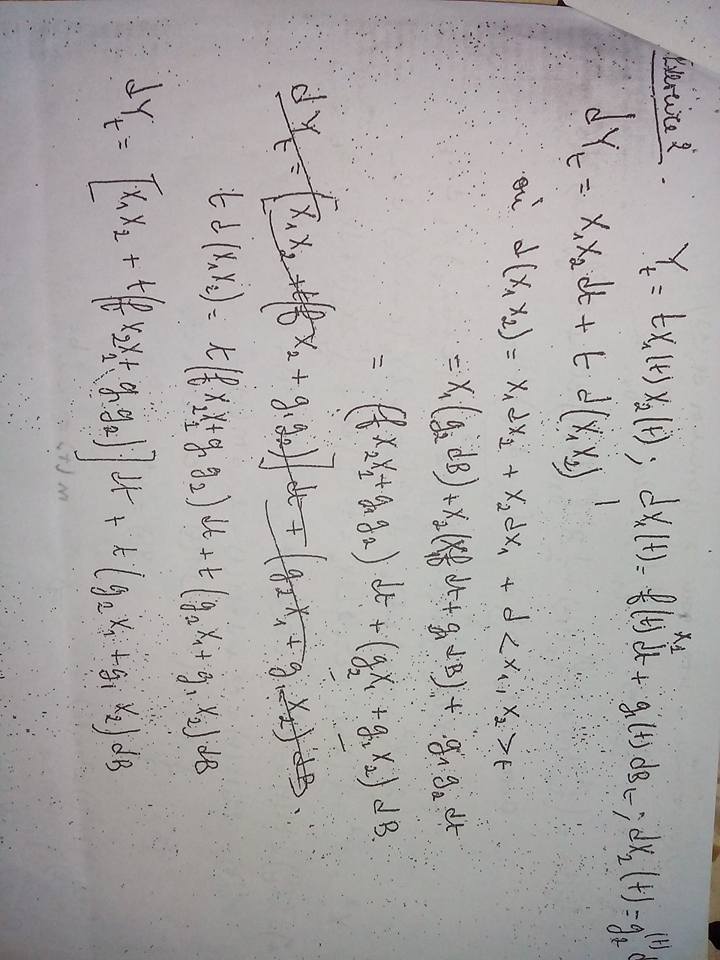 Exercice 2. Y_t = t X_1(t) X_2(t) ; dX_1(t) = f(t) X_1 dt + g_1(t) dB_t ; dX_2(t) = g_2(t) d
dY_t = X_1 X_2 dt + t d(X_1 X_2)
où d(X_1 X_2) = X_1 dX_2 + X_2 dX_1 + d<X_1, X_2>_t
= X_1(g_2 dB) + X_2(X_1 f dt + g_1 dB) + g_1 g_2 dt
= (f X_2 X_1 + g_1 g_2) dt + (g_2 X_1 + g_1 X_2) dB.
dY_t = [X_1 X_2 + t(f X_2 + g_1 g_2)] dt + (g_2 X_1 + g_1 X_2) dB.
t d(X_1 X_2) = t(f X_2 X_1 + g_1 g_2) dt + t(g_2 X_1 + g_1 X_2) dB
dY_t = [X_1 X_2 + t(f X_2 X_1 + g_1 g_2)] dt + t(g_2 X_1 + g_1 X_2) dB